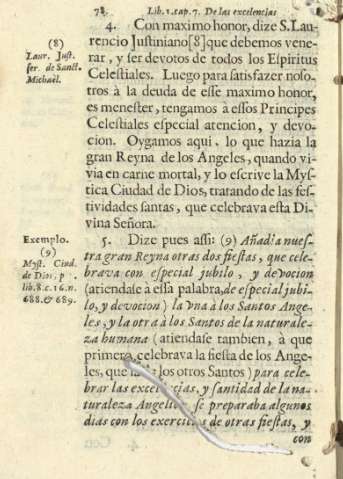 78. Lib. 1. cap. 7. De las excelencias
4. Con maximo honor, dize S. Lau-
rencio Justiniano[8] que debemos vene-
rar, y ser devotos de todos los Espiritus
Celestiales. Luego para satisfazer noso-
tros à la deuda de esse maximo honor,
es menester, tengamos à essos Principes
Celestiales especial atencion, y devo-
cion. Oygamos aqui, lo que hazia la
gran Reyna de los Angeles, quando vi-
via en carne mortal, y lo escrive la Mys-
tica Ciudad de Dios, tratando de las fes-
tividades santas, que celebrava esta Di-
vina Señora.
(8)
Laur. Just.
ser. de Sanct.
Michaël.
5. Dize pues assi: (9) Añadia nues-
tra gran Reyna otras dos fiestas, que cele-
brava con especial jubilo, y devocion
(atiendase à essa palabra, de especial jubi-
lo, y devocion) la vna à los Santos Ange-
les, y la otra à los Santos de la naturale-
za humana (atiendase tambien, à que
primero celebrava la fiesta de los Ange-
les, que los otros Santos) para cele-
brar las excelencias, y santidad de la na-
turaleza Angelica se preparaba algunos
dias con los exercicios de otras fiestas, y
con
Exemplo.
(9)
Myst. Ciud.
de Dios. p
lib. 8. c. 16. n.
688. & 689.